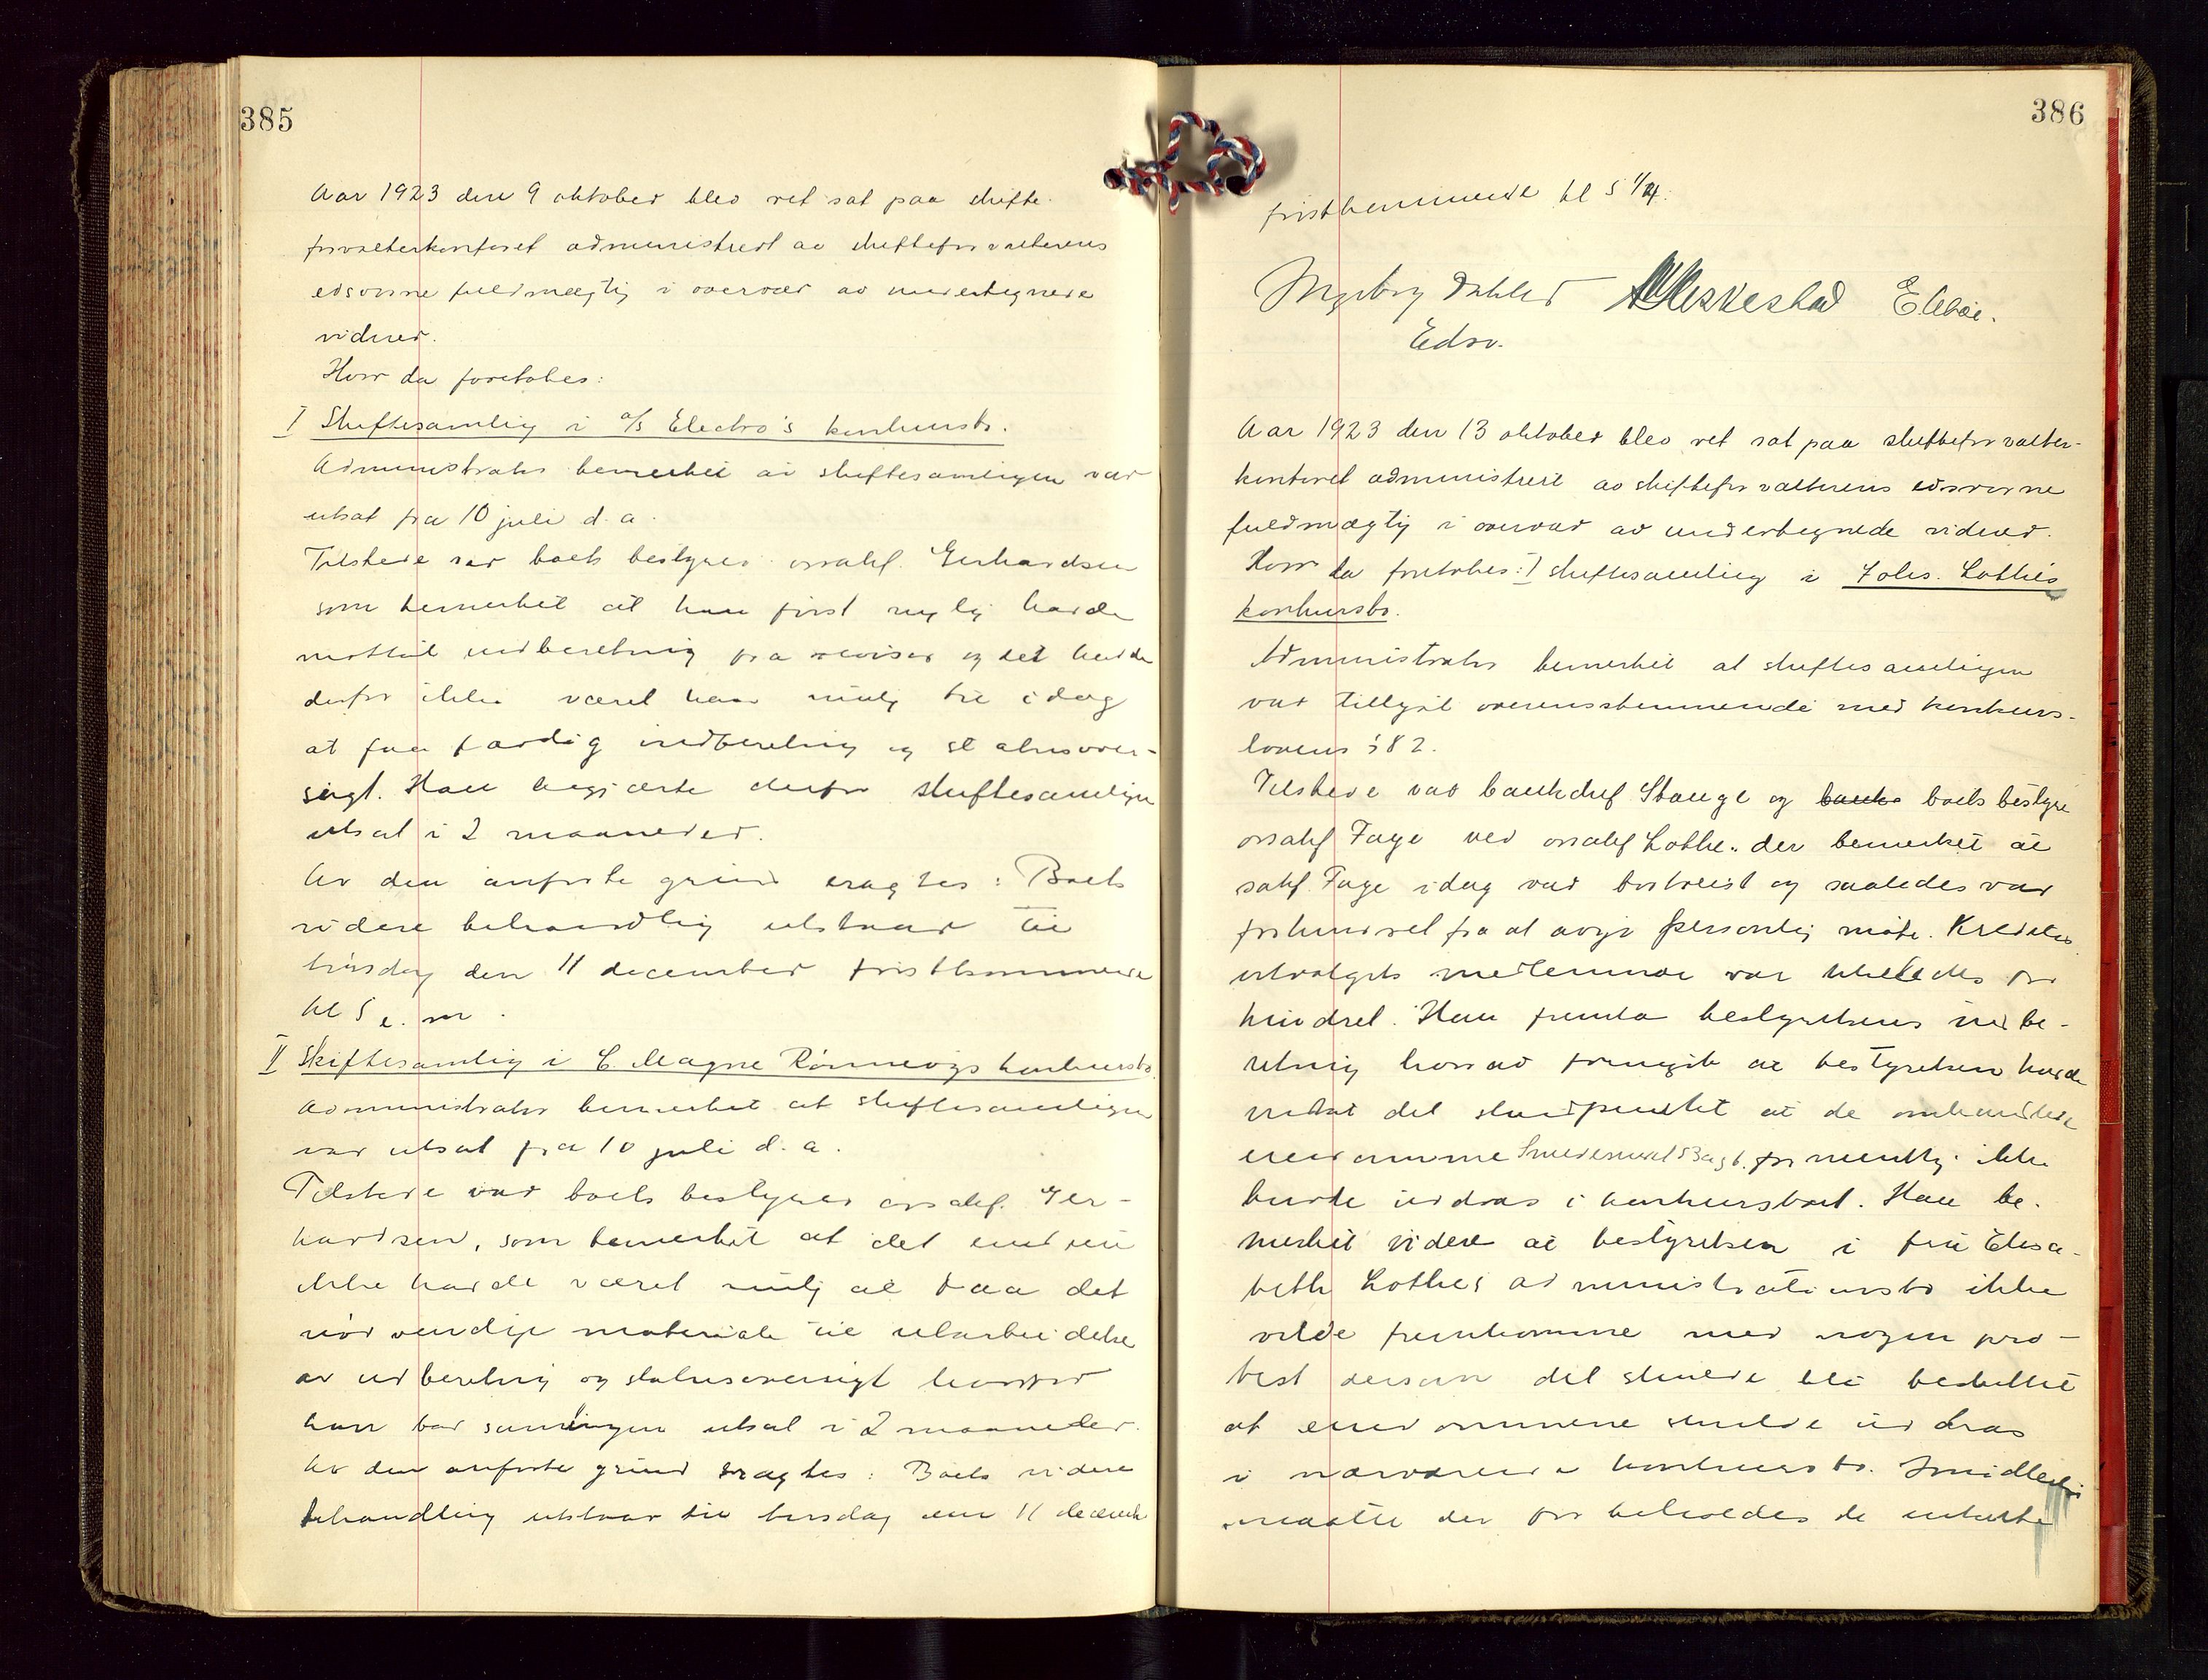 385
Aar 1923 den 9 oktober blev ret sat paa skifte-
forvalterkontoret administrert av skifteforvalterens
edsvorne fuldmægtig i overvær av undertegnede
vidner.
Hvor da foretokes:
I Skiftesamling i a/s Electro's konkursbo.
Administrator bemerket at skiftesamlingen var
utsat fra 10 juli d. a.
Tilstede var boets bestyrer orsakf. Gerhardsen
som bemerket at han først nylig havde
mottat indberetning fra revisor og det havde
derfor ikke været ham mulig til idag
at faa færdig indberetning og statusover-
sigt. Han begjærte derfor skiftesamlingen
utsat i 2 maaneder.
Av den anførte grund eragtes: Boets
videre behandling utstaar til
tirsdag den 11 december førstkommende
kl 5 e. m.
II Skiftesamling i C. Magne Rønnevigs konkursbo.
Administrator bemerket at skiftesamlingen
var utsat fra 10 juli d. a.
Tilstede var boets bestyrer orsakf. Ger-
hardsen, som bemerket at det endnu
ikke havde været mulig at faa det
nødvendige materiale til utarbeidelse
av indberetning og statusoversigt hvorfor
han bad samlingen utsat i 2 maaneder.
Av den anførte grund eragtes: Boets videre
behandling utstaar til tirsdag den 11 decemb.
386
førstkommende kl 5 1/4.
Ingeborg Dahler Meskestad
Edsv.
Aar 1923 den 13 oktober blev ret sat paa skifteforvalter-
kontoret administrert av skifteforvalterens edsvorne
fuldmægtig i overvær av undertegnede vidner.
Hvor da foretokes: I skiftesamling i Johs. Lothes
konkursbo.
Administrator bemerket at skiftesamlingen
var tillyst overensstemmende med konkurs-
lovens § 82.
Tilstede var bankchef Stange og banke boets bestyrer
orsakf Fage ved orsakf Lothe. der bemerket at
sakf. Fage idag var bortreist og saaledes var
forhindret fra at avgi personlig møte. Kreditor
utvalgets medlemmer var likeledes for
hindret. Han fremla bestyrelsens indbe-
retning hvorav fremgik at bestyrelsen havde
indtat det standpunktet at de omhandlede
eiendomme Smedesundet formentlig ikke
burde inddras i konkursboet. Han be-
merket videre at bestyrelsen i fru Elisa-
beth Lothes administrationsbo ikke
vilde fremkomme med nogen pro-
test dersom det skulde bli besluttet
at eiendommene skulde inddras
i nærværende konkursbo. Imidlertid
maatte der forbeholdes de enkelte